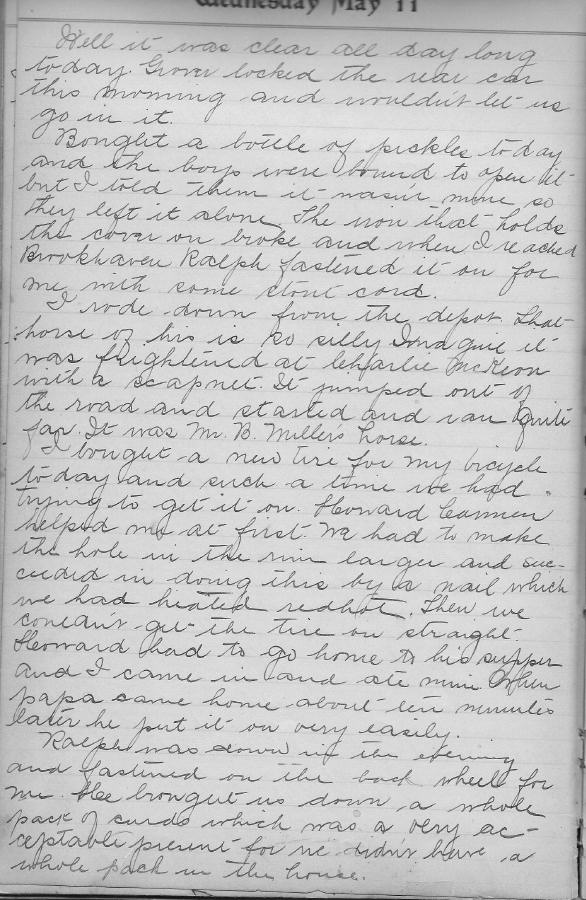 Wednesday May 11
Well it was clear all day long
today. Grover locked the rear car
this morning and wouldn't let us
go in it.
Bought a bottle of pickles today
and the boys were bound to open it
but I told them it wasn't mine so
they left it alone. The iron that holds
the cover on broke and when I reached
Brookhaven Ralph fastened it on for
me with some stout cord.
I rode down from the depot. That
horse of his is so silly Imagine it
was frightened at Charlie McKeon
with a scapnet. It jumped out of
the road and started and ran quite
far. It was Mr. B. Miller's horse.
I bought a new tire for my bicycle
today and such a time we had
trying to get it on. Howard Carmen
helped me at first. We had to make
the hole in the rim larger and suc-
ceeded in doing this by a nail which
we had heated redhot. Then we
couldn't get the tire on straight
Howard had to go home to his supper
and I came in and ate mine. When
papa came home about ten minutes
later he put it on very easily.
Ralph was down in the evening
and fastened on the back wheel for
me. He brought us down a whole
pack of cards which was a very ac-
ceptable present for we didn't have a
whole pack in the house.